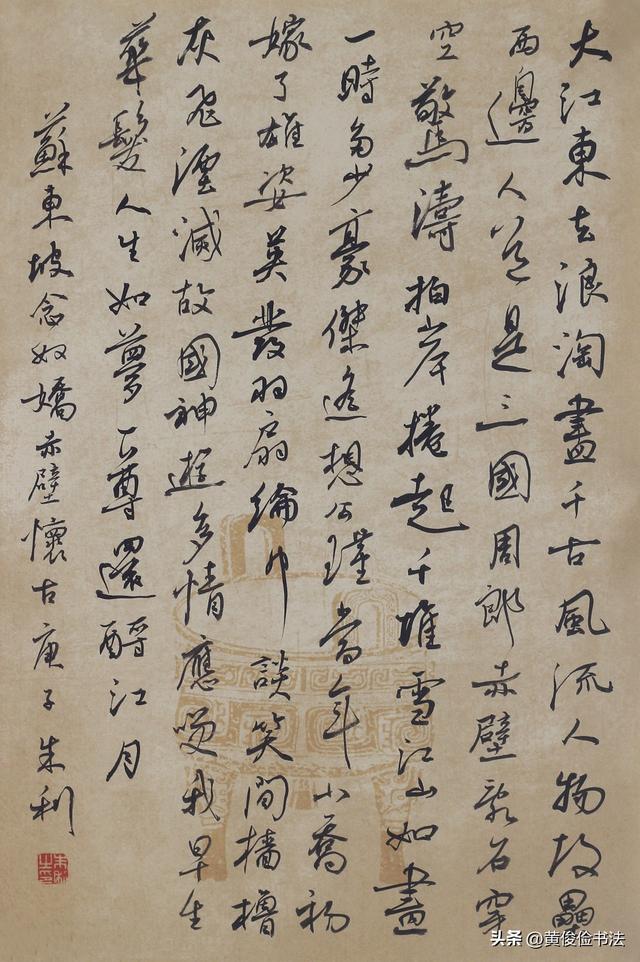 大江東去浪淘盡千古風流人物故壘
西邊人道是三國周郎赤壁亂石穿
空驚濤拍岸捲起千堆雪江山如畫
一時多少豪傑遙想公瑾當年小喬初
嫁了雄姿英發羽扇綸巾談笑間檣櫓
灰飛湮滅故國神遊多情應笑我早生
華髮人生如夢一尊還酹江月
蘇東坡念奴嬌赤壁懷古庚子朱利
头条 @黄俊俭书法